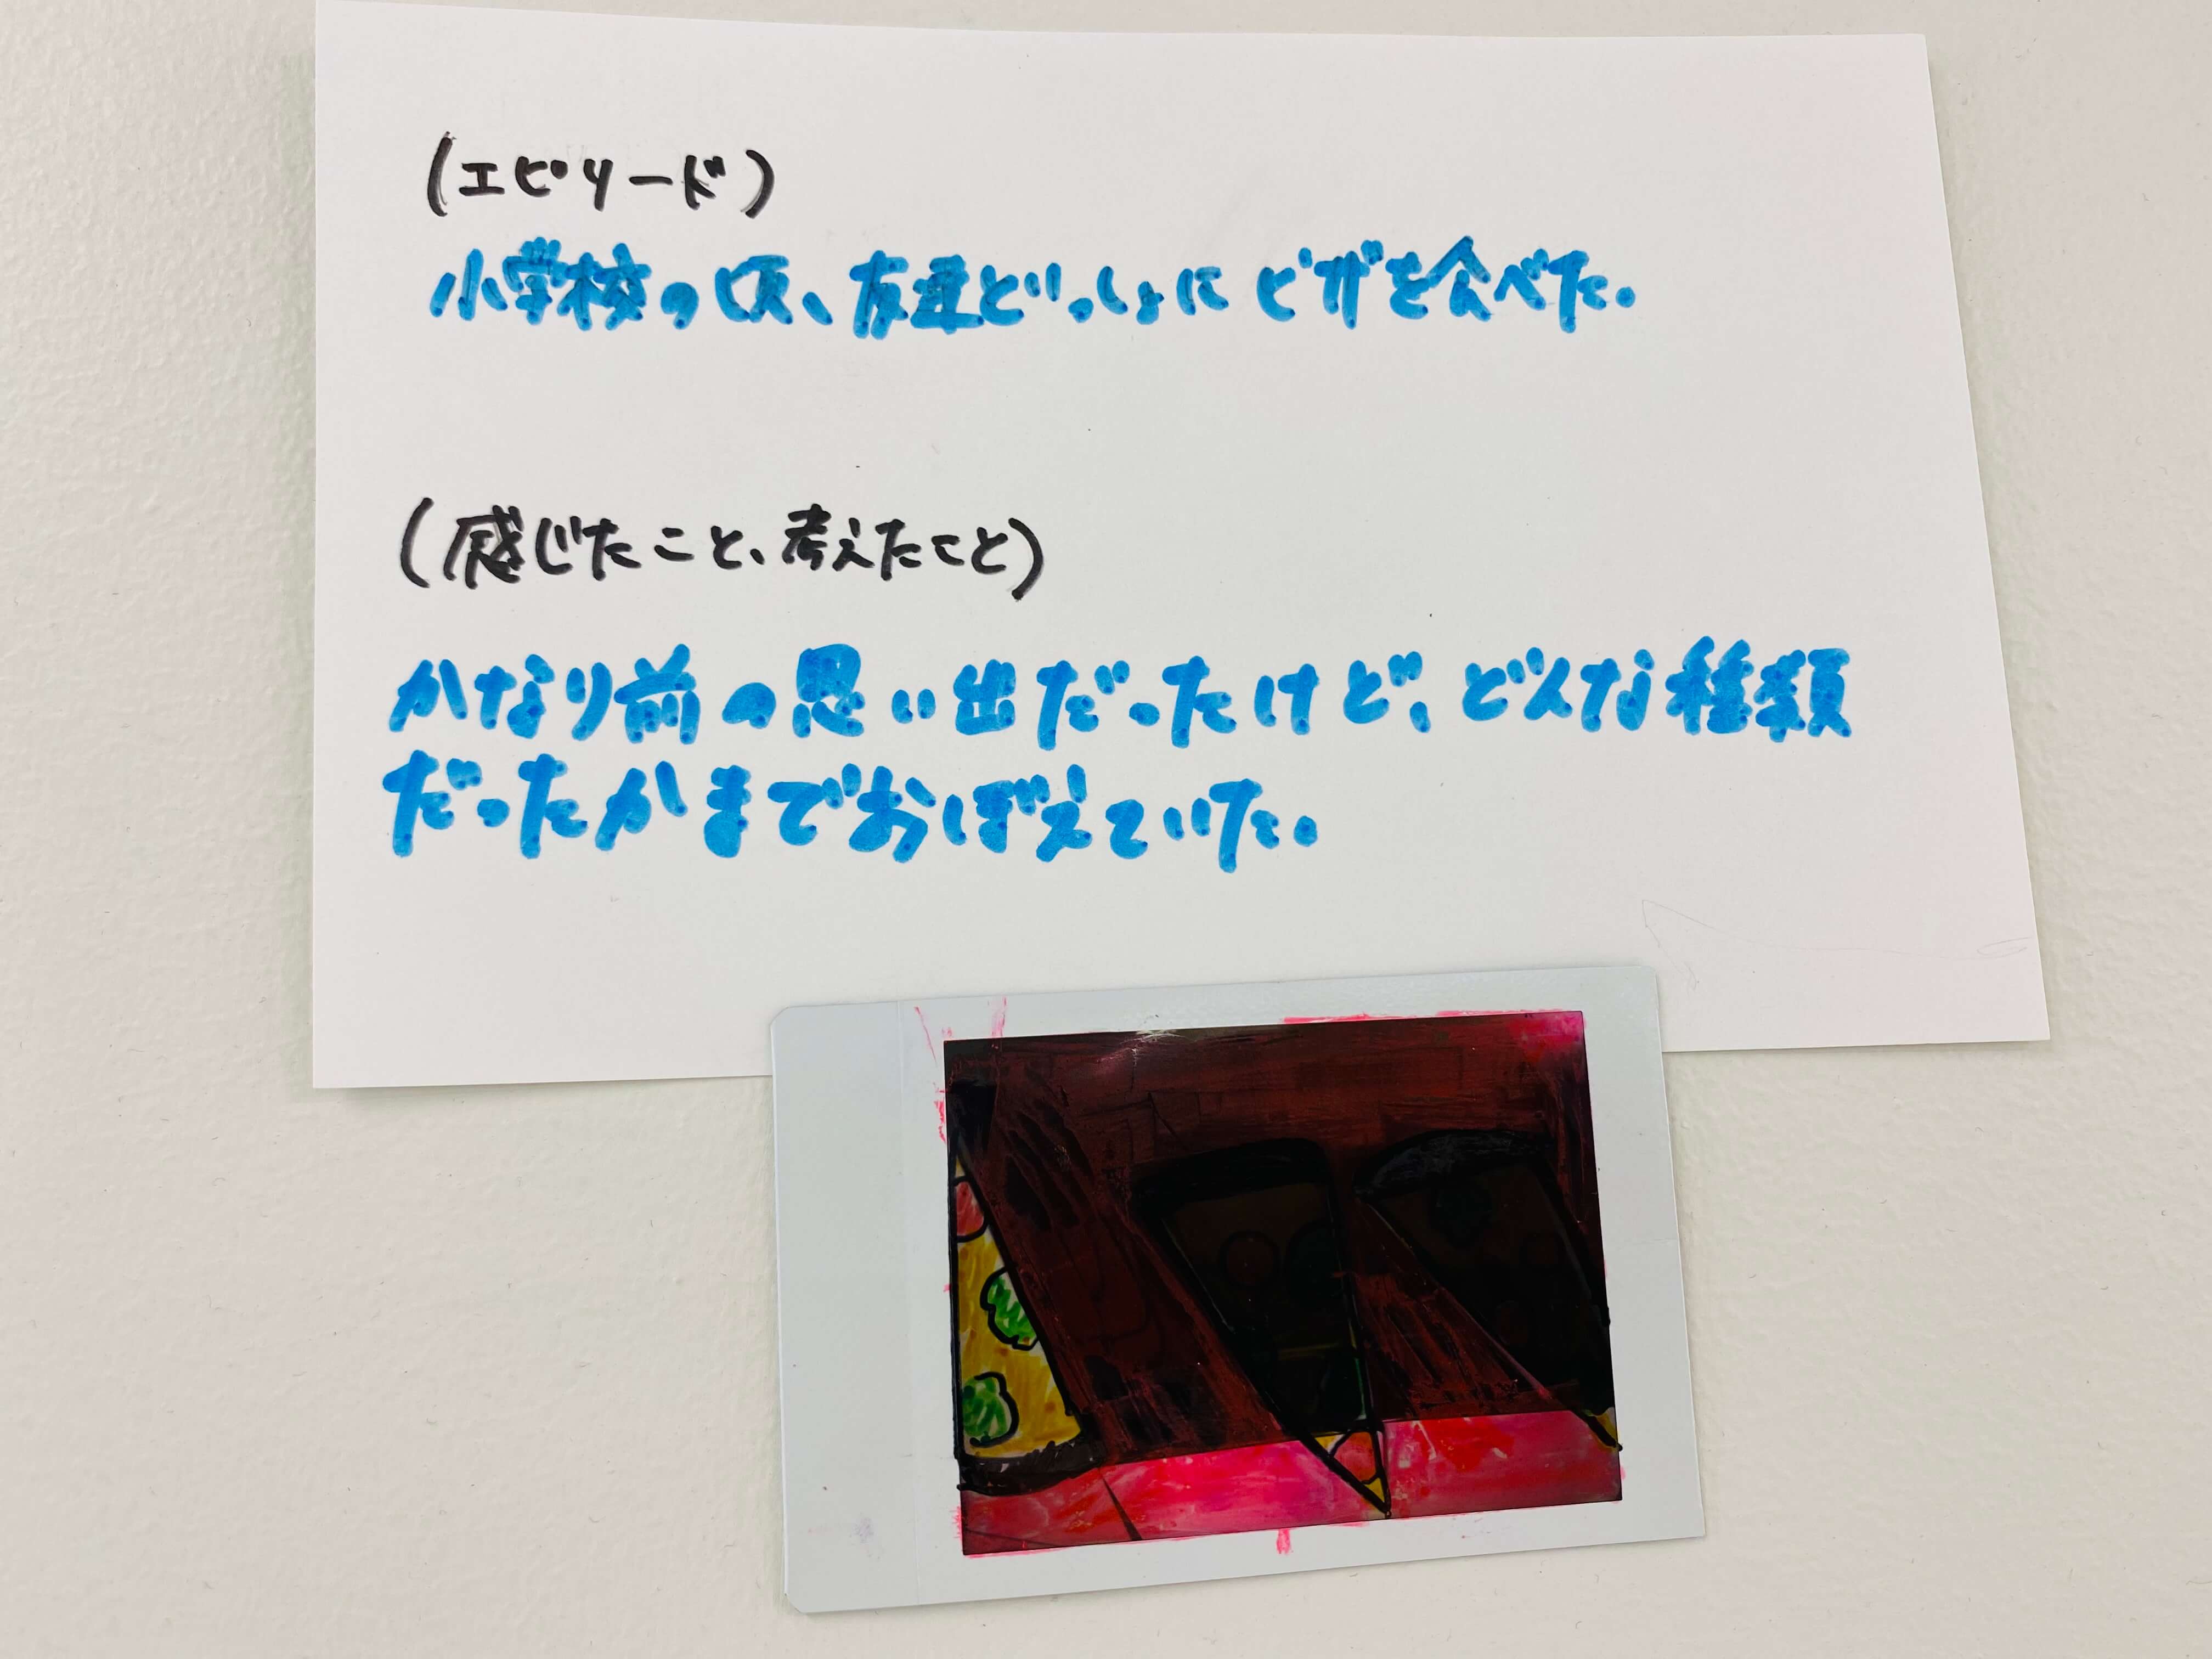 (エピソード)
小学校の頃、友達といっしょにピザを食べた。
(感じたこと、考えたこと)
かなり前の思い出だったけど、どんな種類
だったかまでおぼえていた。